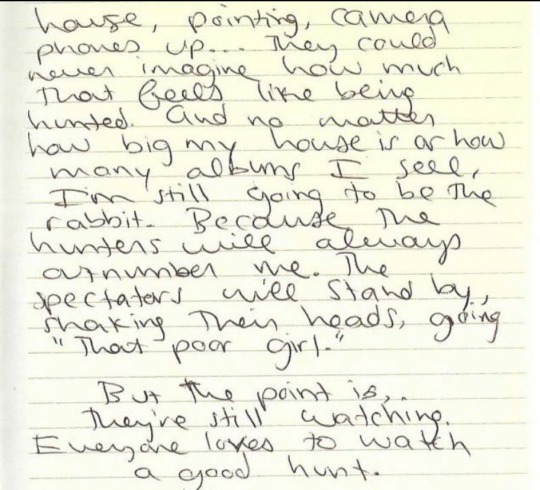 house, pointing, camera
phones up... They could
never imagine how much
that feels like being
hunted. And no matter
how big my house is or how
many albums I sell,
I'm still going to be the
rabbit. Because the
hunters will always
outnumber me. The
spectators will stand by,
shaking their heads, going
"That poor girl."
But the point is,
they're still watching.
Everyone loves to watch
a good hunt.